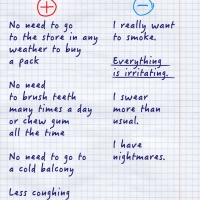 No need to go
to the store in any
weather to buy
a pack
No need
to brush teeth
many times a day
or chew gum
all the time
No need to go to
a cold balcony
Less coughing
I really want
to smoke.
Everything
is irritating.
I swear
more than
usual.
I have
nightmares.